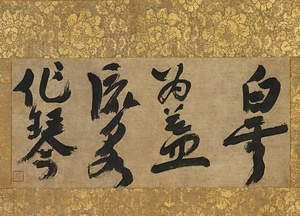 白雲
為蓋
流泉
作琴